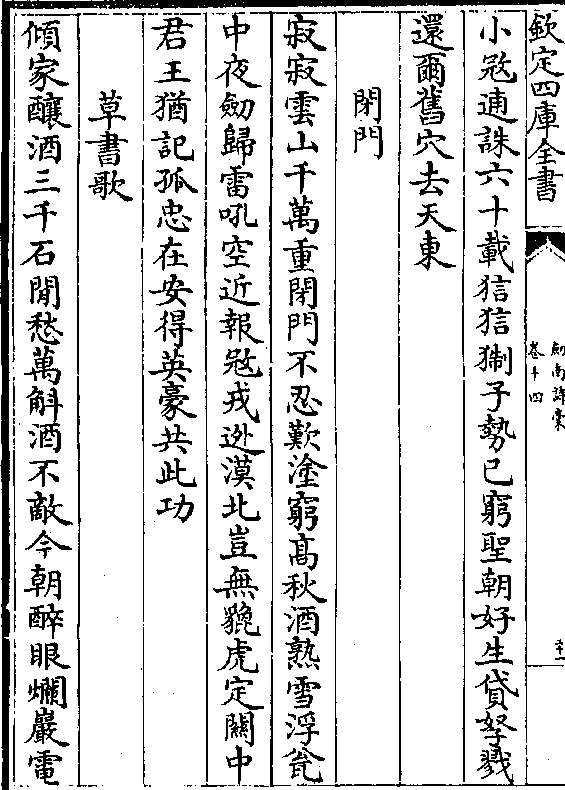 欽定四庫全書
劍南詩稾
卷十四
小㓂逋誅六十載狺狺猘子勢已窮聖朝好生貸孥戮
還爾舊穴去天東
閉門
寂寂雲山千萬重閉門不忍歎塗窮髙秋酒熟雪浮瓮
中夜劒歸雷吼空近報㓂戎迯漠北豈無貔虎定闗中
君王猶記孤忠在安得英豪共此功
草書歌
傾家釀酒三千石閒愁萬斛酒不敵今朝醉眼爛巖電